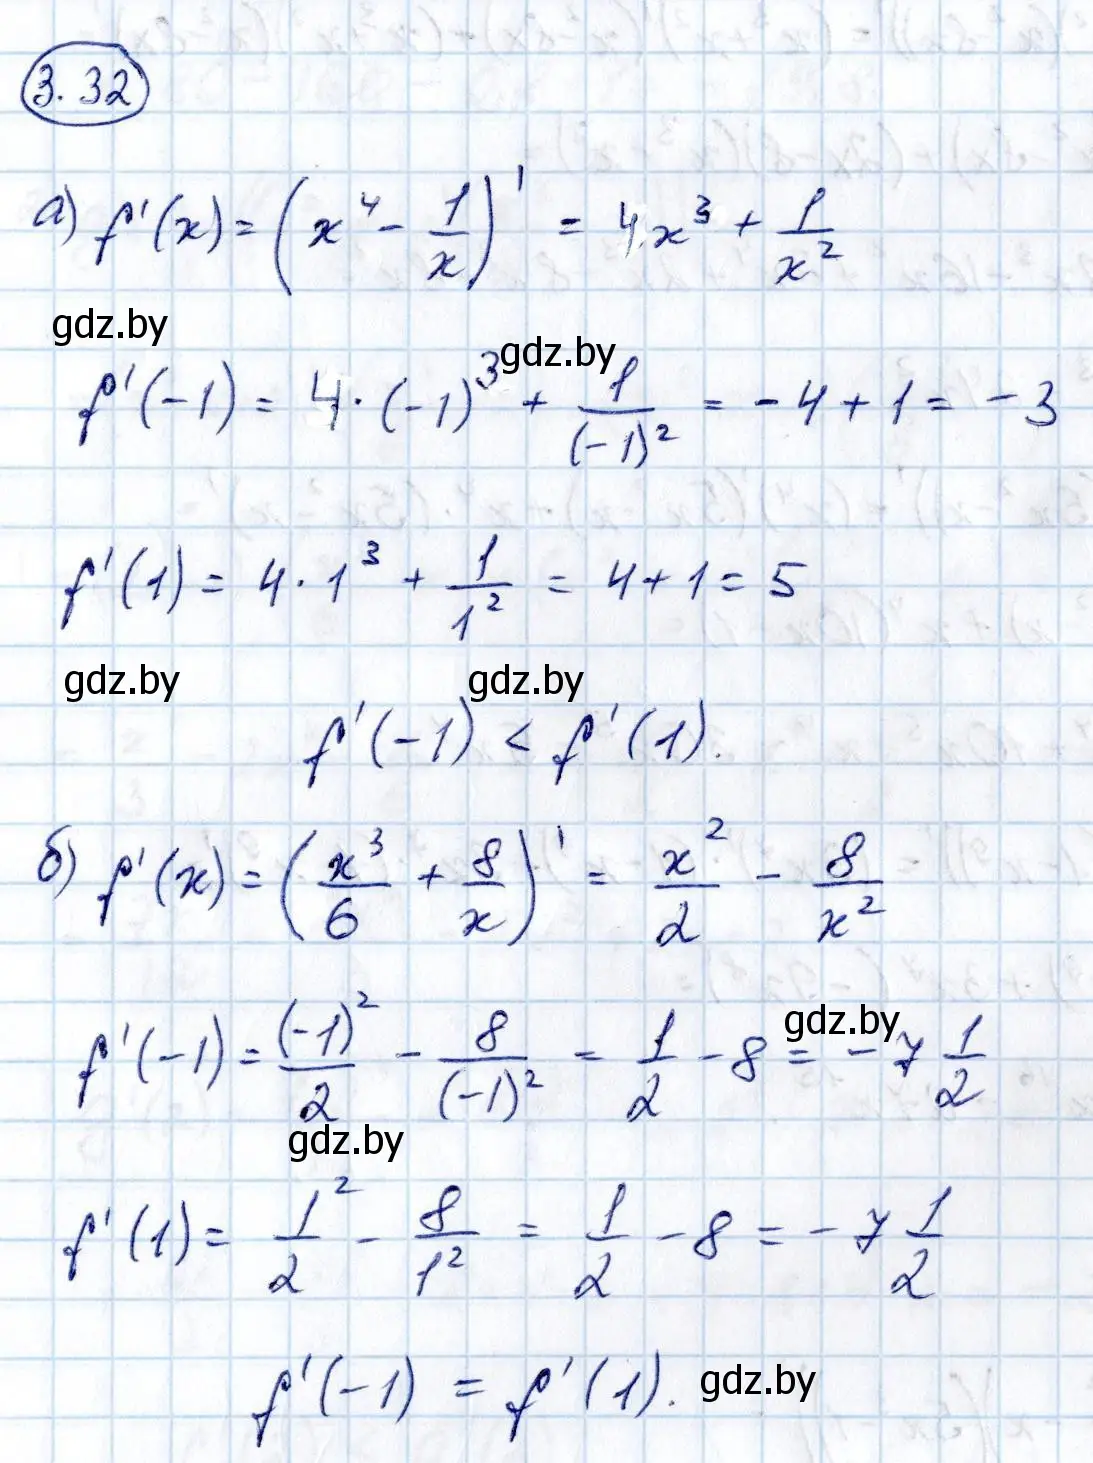 3.32
а) f'(x) = (x⁴ - 1/x)' = 4x³ + 1/x²
gdz.by
gdz.by
f'(-1) = 4·(-1)³ + 1/(-1)² = -4+1 = -3
f'(1) = 4·1³ + 1/1² = 4+1 = 5
gdz.by
gdz.by
f'(-1) < f'(1).
б) f'(x) = (x³/6 + 8/x)' = x²/2 - 8/x²
gdz.by
f'(-1) = (-1)²/2 - 8/(-1)² = 1/2 - 8 = -7 1/2
gdz.by
f'(1) = 1²/2 - 8/1² = 1/2 - 8 = -7 1/2
f'(-1) = f'(1).
gdz.by